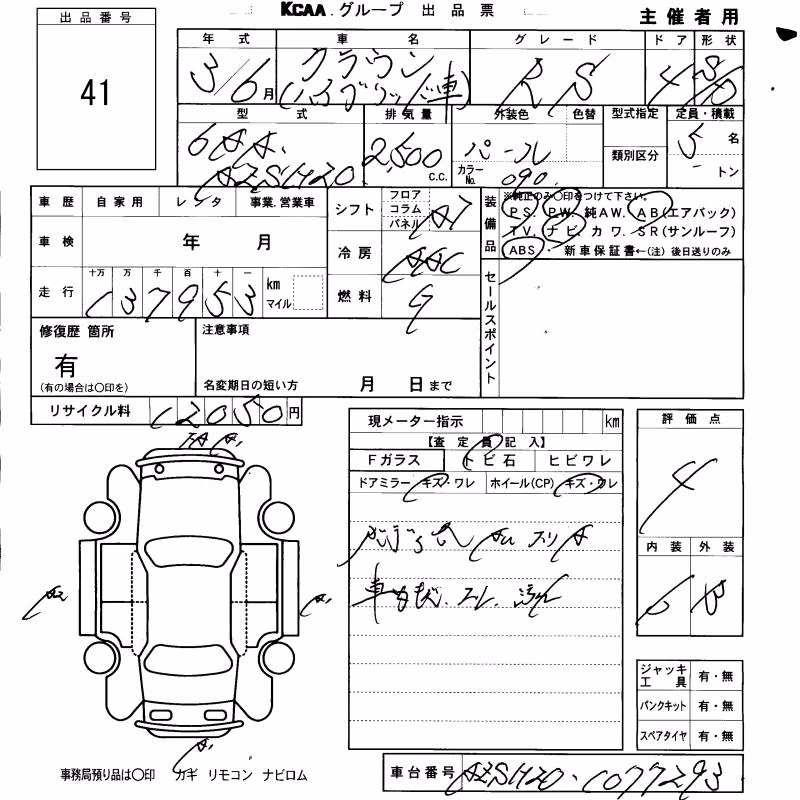 KCAA.グループ 出品票
主催者用
出品番号
41
年式 車名 グレード ドア 形状
3/6月 クラウン (ハイブリッド車) RS 4 S/D
型式 排気量 外装色 色替 型式指定 定員・積載
6AA. AZSH20 2,500 C.C. パール 類別区分 5名
カラーNo. 090. トン
車歴 自家用 レンタ 事業.営業車
シフト フロア コラム パネル AT
装備品 ※純正のみ〇印をつけて下さい。
PS. PW. 純AW. AB(エアバック)
TV. ナビ. カワ. SR(サンルーフ)
ABS. 新車保証書←(注) 後日送りのみ
車検 年 月
冷房 AAC
走行 十万 万 千 百 十 一
137953 km マイル
燃料 G
セールスポイント
修復歴 箇所
有
(有の場合は〇印を)
注意事項
名変期日の短い方 月 日まで
リサイクル料 12050円
現メーター指示 km
【査定員記入】
Fガラス トビ石 ヒビワレ
ドアミラー キズ・ワレ ホイール(CP) キズ・ワレ
評価点
4
内装 外装
B
A1
A2
A1
A1
ジャッキ工具 有・無
パンクキット 有・無
スペアタイヤ 有・無
事務局預り品は〇印 カギ リモコン ナビロム
車台番号 AZSH20-1077293